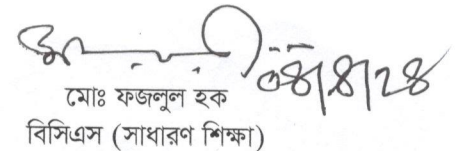 ০৪/৪/২৪
মোঃ ফজলুল হক
বিসিএস (সাধারণ শিক্ষা)